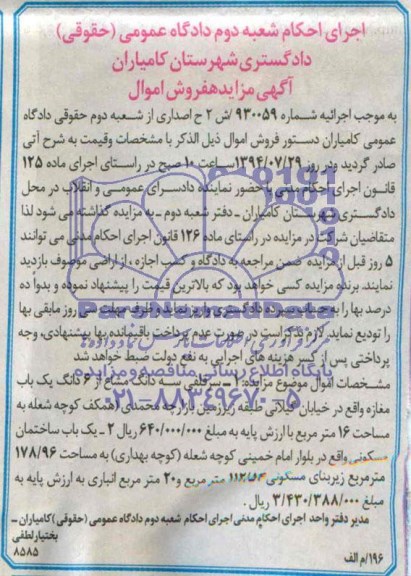 اجرای احکام شعبه دوم دادگاه عمومی (حقوقی)
دادگستری شهرستان کامیاران
آگهی مزایده‌فروش اموال
به موجب اجرائیه شماره ۹۳۰۰۵۹/ش ۲ ح اصداری از شعبه دوم حقوقی دادگاه
عمومی کامیاران دستور فروش اموال ذیل الذکر با مشخصات وقیمت به شرح آتی
صادر گردید ودر روز ۱۳۹۴/۰۷/۲۹ساعت ۱۰ صبح در راستای اجرای ماده ۱۲۵
قانون اجرای احکام مدنی با حضور نماینده دادسرای عمومی و انقلاب در محل
دادگستری شهرستان کامیاران ـ دفتر شعبه دوم ـ به مزایده گذاشته می شود لذا
متقاضیان شرکت در مزایده در راستای ماده ۱۲۶ قانون اجرای احکام مدنی می توانند
۵ روز قبل از مزایده ضمن مراجعه به دادگاه و کسب اجازه ، از اراضی موصوف بازدید
نمایند. برنده مزایده کسی خواهد بود که بالاترین قیمت را پیشنهاد نموده و بدوا ده
درصد بها را به حساب سپرده دادگستری واریز نماید و ظرف مهلت سی روز مابقی بها
را تودیع نماید. لازم بذکر است در صورت عدم پرداخت باقیمانده بها پیشنهادی، وجه
پرداختی پس از کسر هزینه های اجرایی به نفع دولت ضبط خواهد شد
مشخصات اموال موضوع مزایده: ۱ ـ سرقفلی سه دانگ مشاع از ۶ دانگ یک باب
مغازه واقع در خیابان گیلانی طبقه زیرزمین بازارچه محمدی (همکف کوچه شعله به
مساحت ۱۶ متر مربع با ارزش پایه به مبلغ ۶۴۰/۰۰۰/۰۰۰ ریال ۲ ـ یک باب ساختمان
مسکونی واقع در بلوار امام خمینی کوچه شعله (کوچه بهداری) به مساحت ۱۷۸/۹۶
مترمربع زیربنای مسکونی متر مربع و۲۰ متر مربع انباری به ارزش پایه به
مبلغ ۳/۴۳۰/۳۸۸/۰۰۰ ریال.
مدیر دفتر واحد اجرای احکام مدنی اجرای احکام شعبه دوم دادگاه عمومی (حقوقی) کامیاران ـ
بختیار لطفی
۱۹۶/م الف
۸۵۸۵
پایگاه اطلاع رسانی مناقصه و مزایده
۰۲۱-۸۸۳۴۹۶۷۰-۵